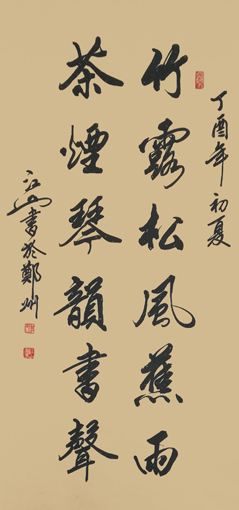 丁酉年初夏
竹露松風蕉雨
茶煙琴韻書聲
江山書於鄭州